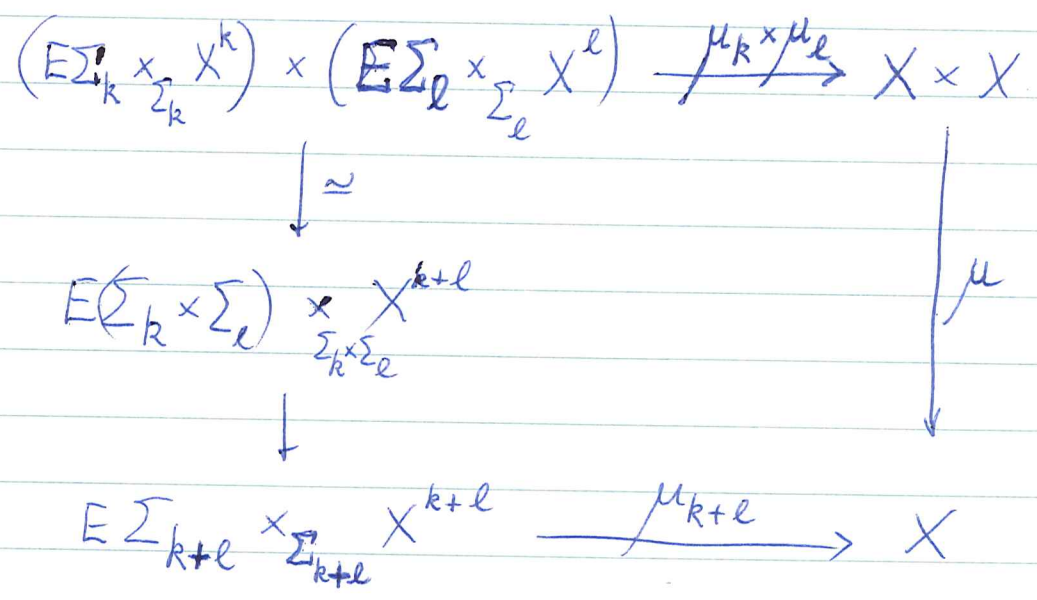 (EΣ_k ×_{Σ_k} X^k) × (EΣ_ℓ ×_{Σ_ℓ} X^ℓ) μ_k × μ_ℓ → X × X
↓ ≃
E(Σ_k × Σ_ℓ) ×_{Σ_k × Σ_ℓ} X^{k+ℓ} ↓ μ
↓
EΣ_{k+ℓ} ×_{Σ_{k+ℓ}} X^{k+ℓ} μ_{k+ℓ} → X